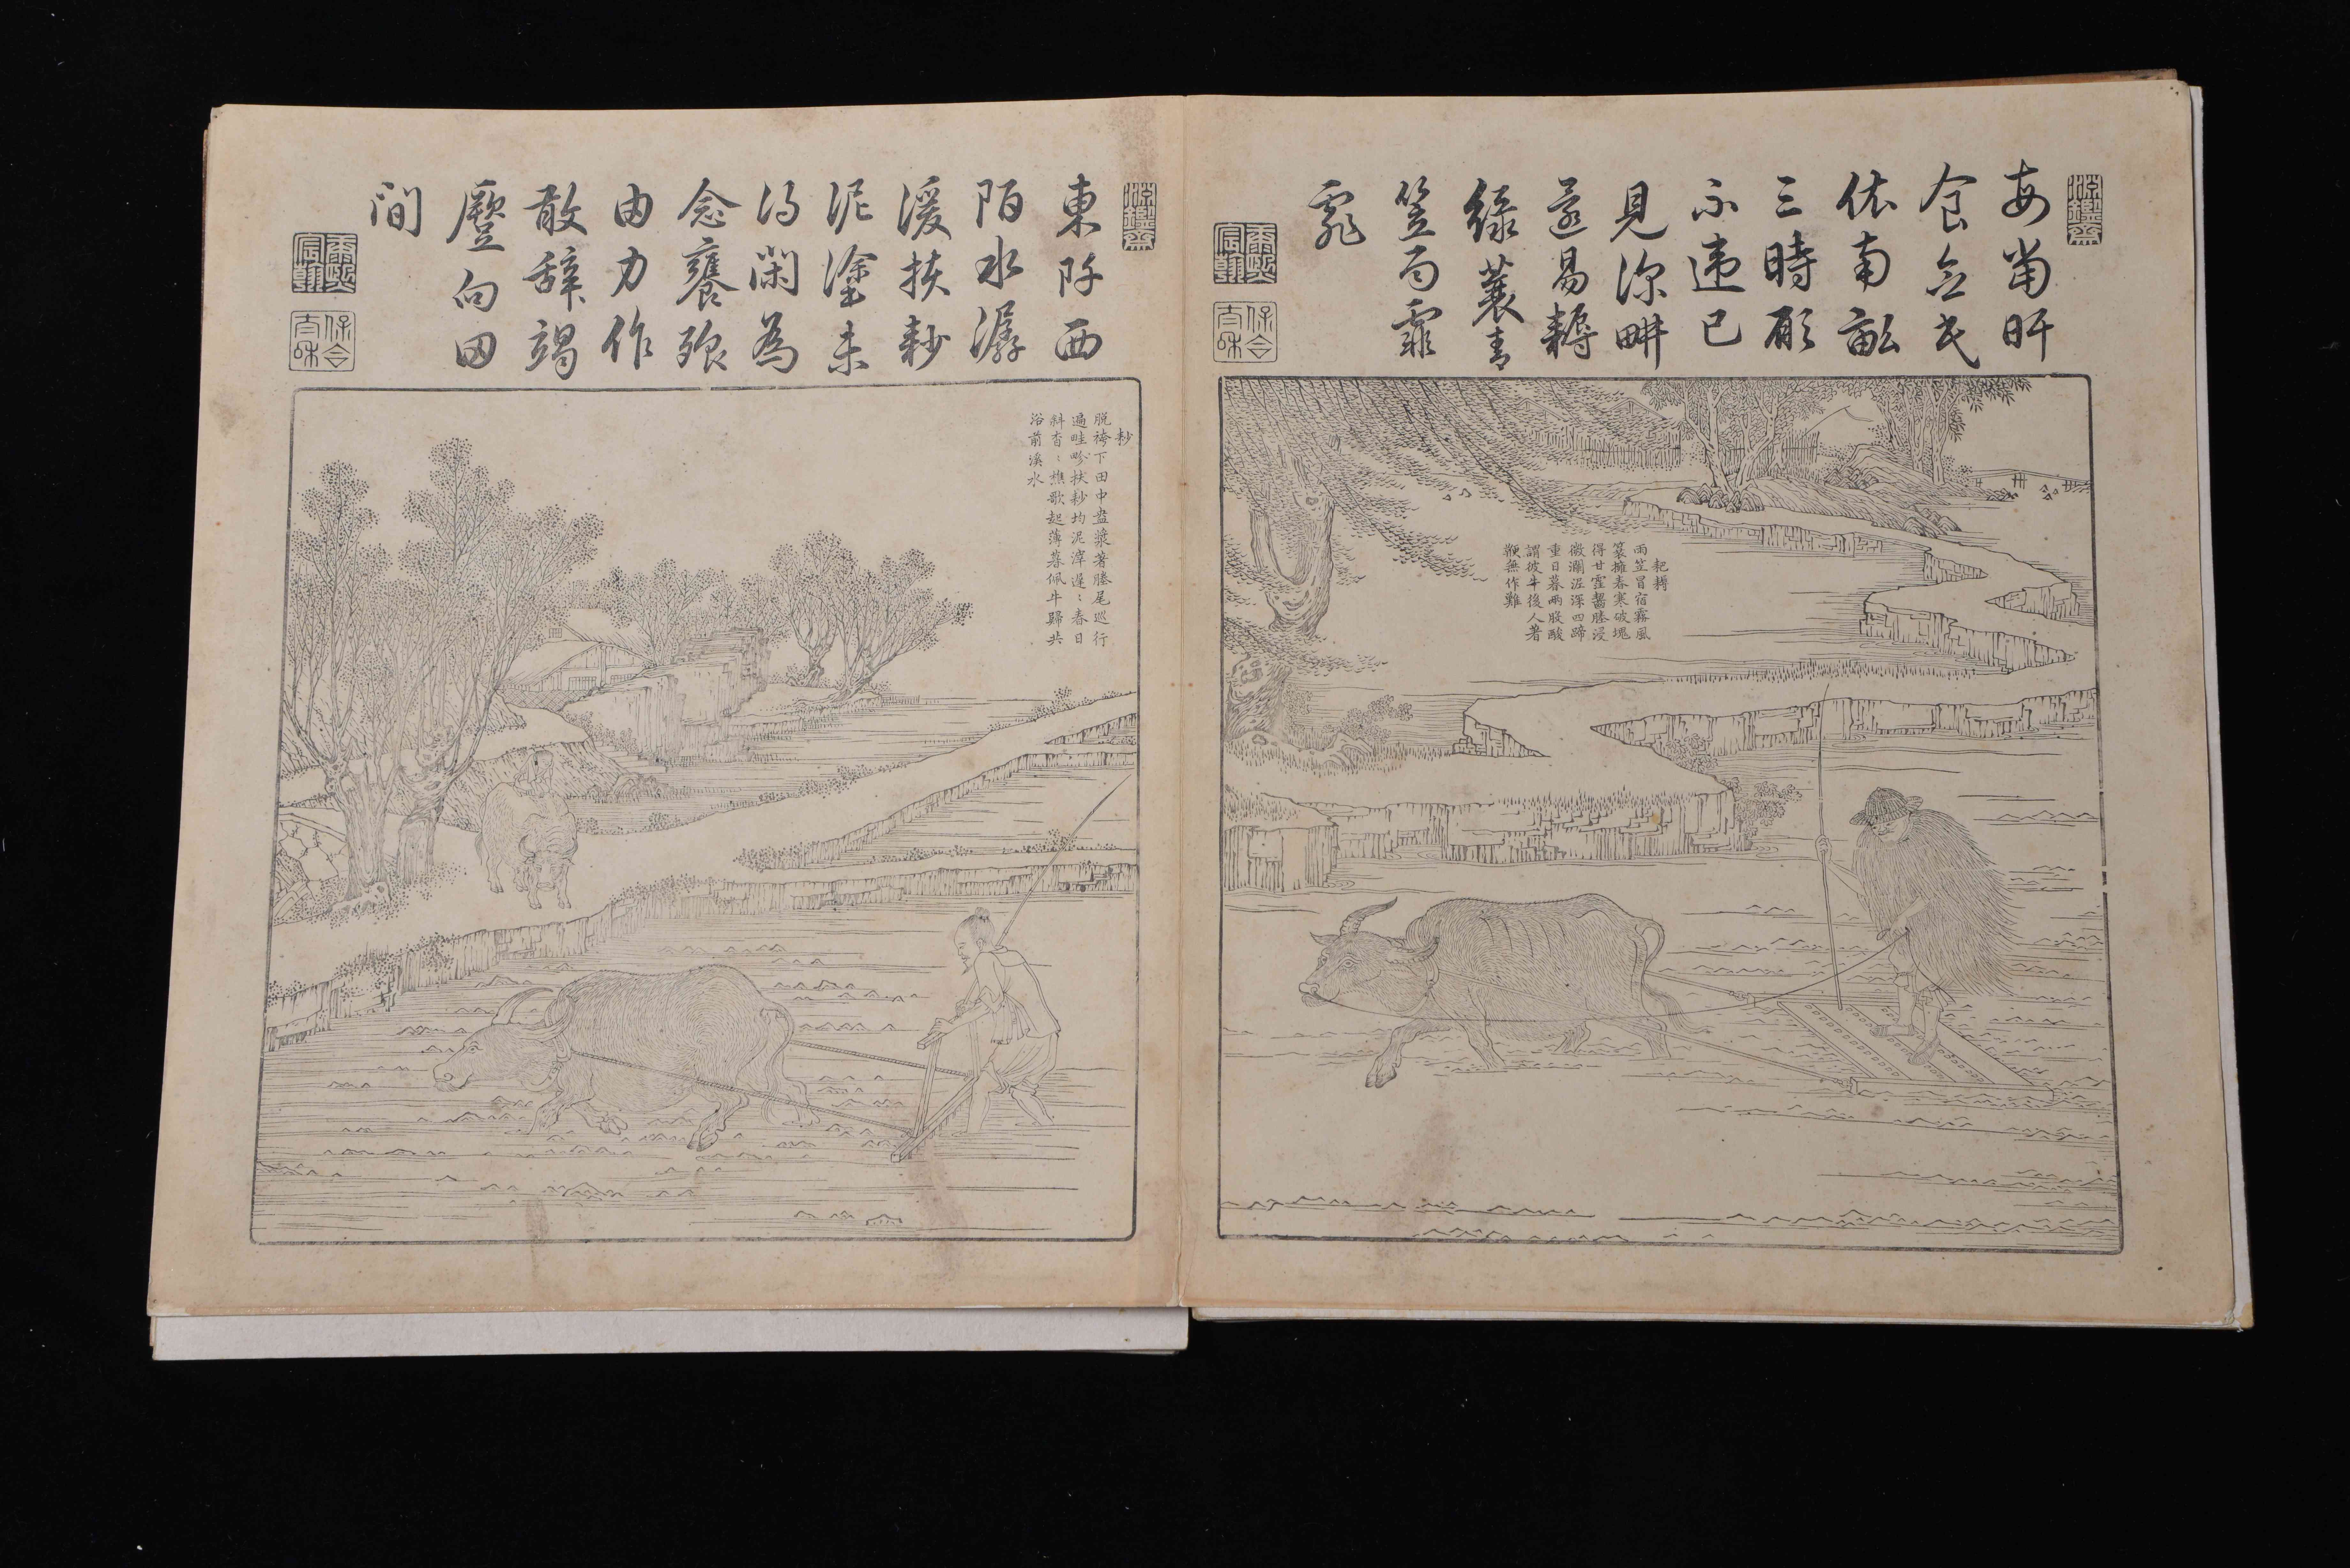 淵鑑齋
每當旰
食念民
依南畝
三時願
不違已
見深畊
還易耨
綠蓑青
笠雨霏
霏
康熙宸翰
保合太和
耙耨
雨笠冒宿霧風
蓑擁春寒破塊
得甘霔齧塍浸
微瀾泥深四蹄
重日暮兩股酸
謂彼牛後人著
鞭無作難
淵鑑齋
東阡西
陌水潺
湲扶耖
泥塗未
得閑為
念饔飧
由力作
敢辭竭
蹷向田
間
康熙宸翰
保合太和
耖
脫袴下田中盎漿著塍尾巡行
遍畦畛扶耖均泥滓遲〻春日
斜杳〻樵歌起薄暮佩牛歸共
浴前溪水